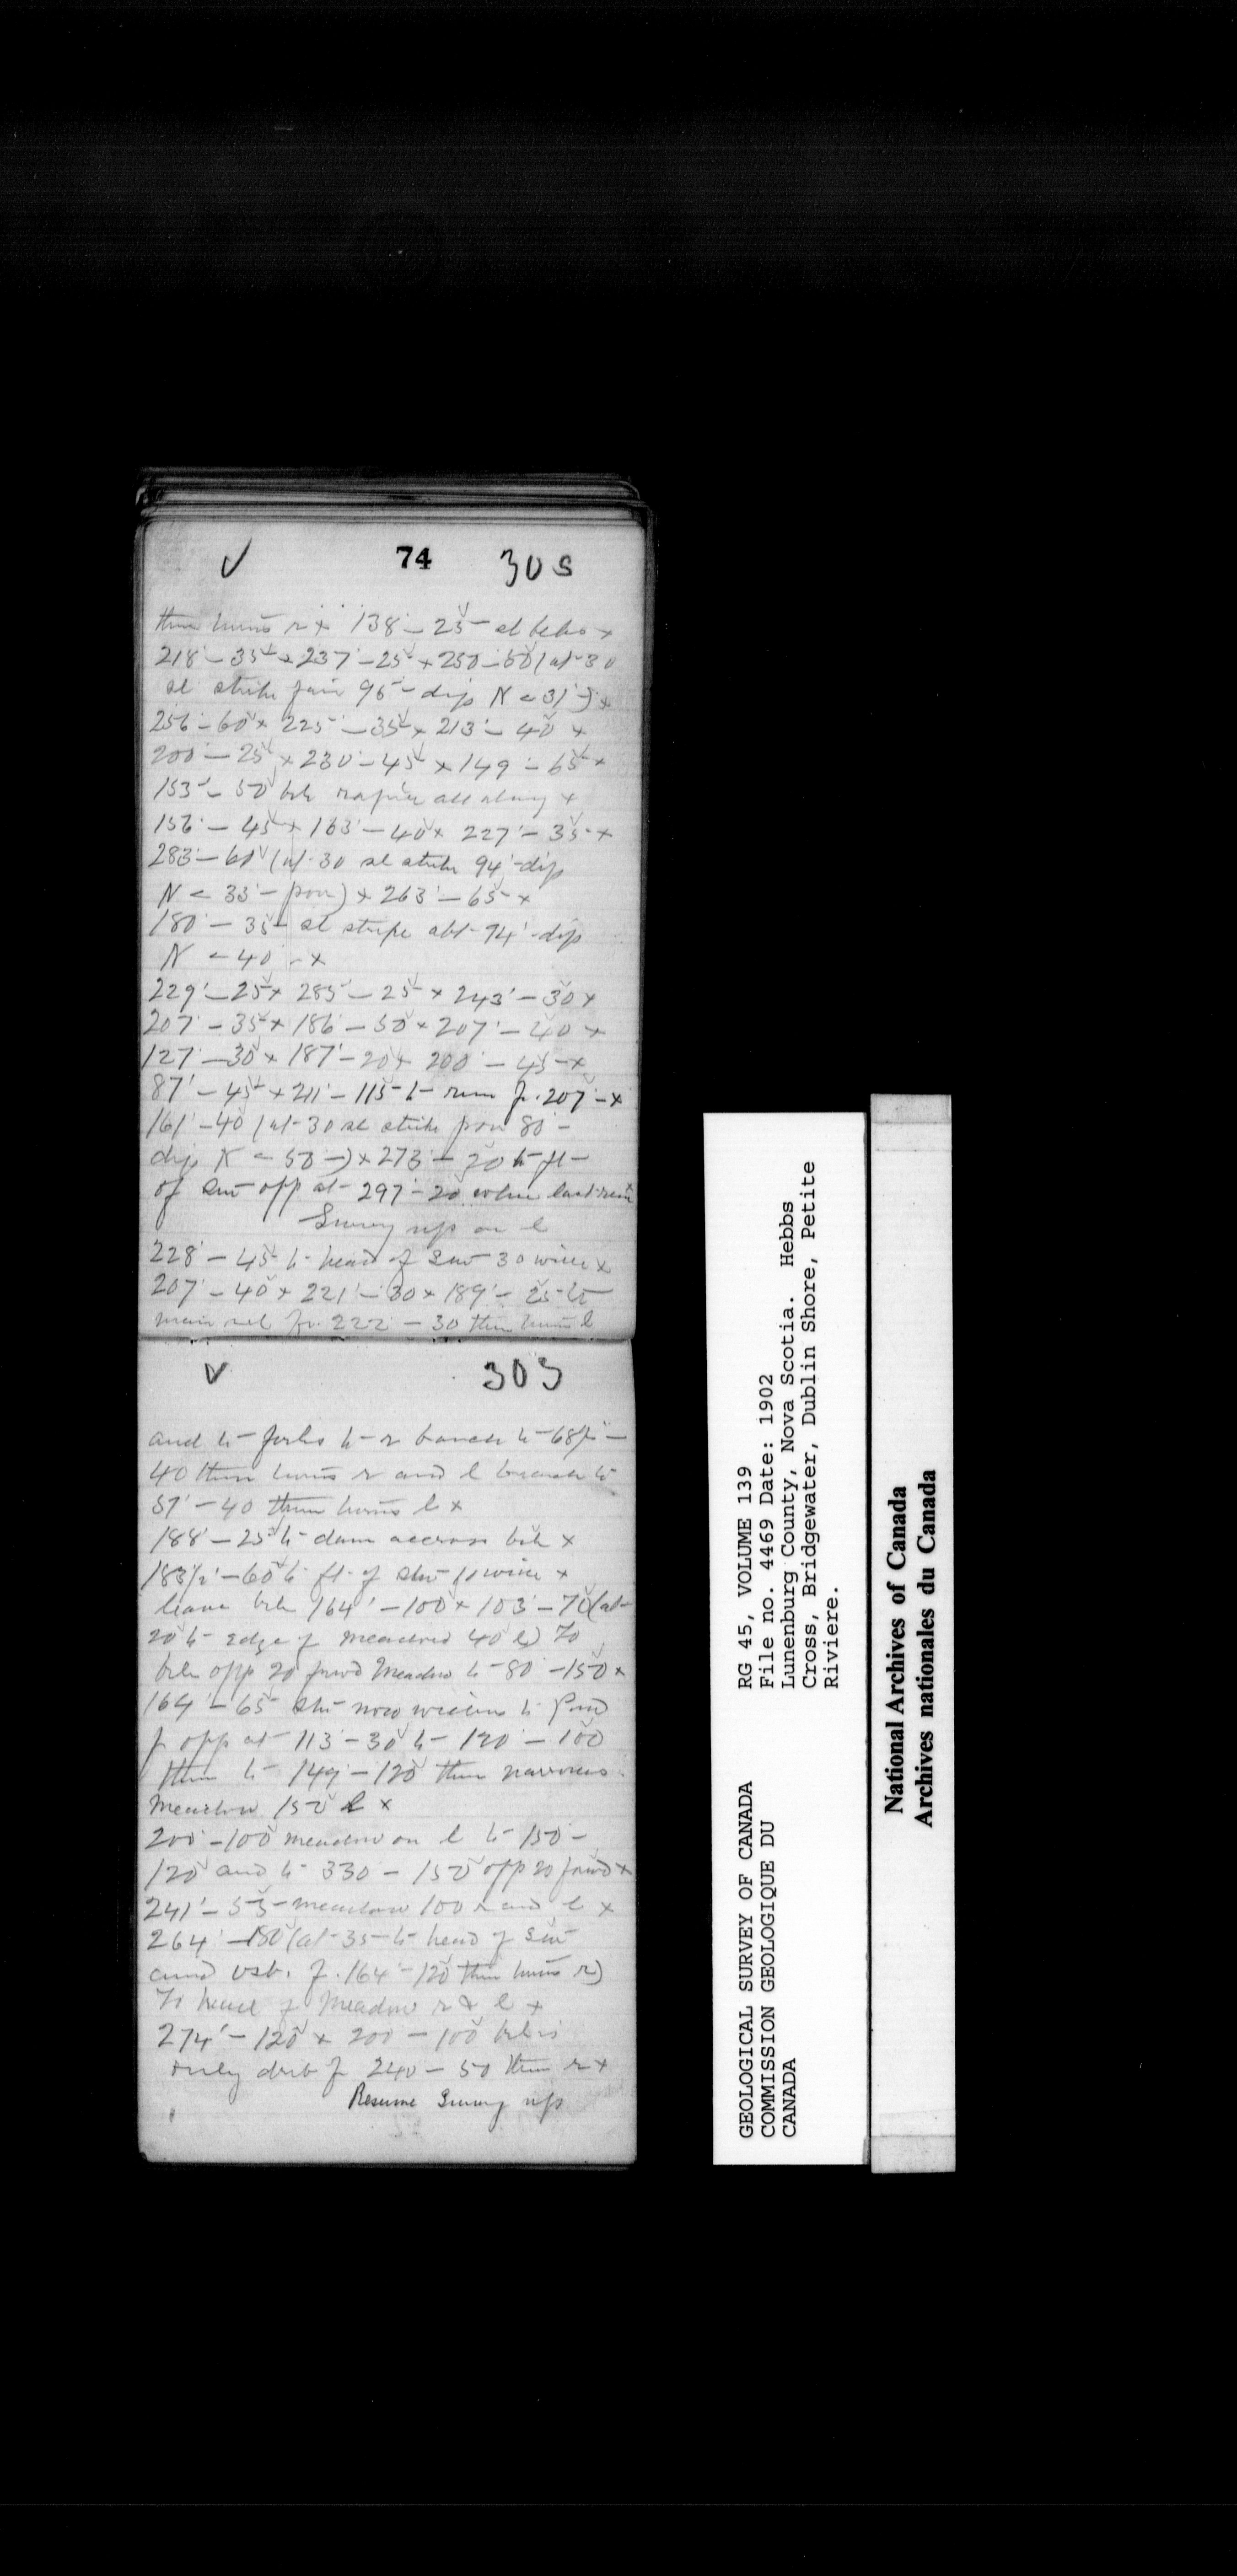 74 30 S
then turns r x 138' - 25 - sl
218' - 35 x 237' - 25 x 250 - 50 (at 30
sl strike fair 95 - dip N < 31' -) x
256 - 60 x 225 - 35 x 213 - 40 x
200 - 25 x 230 - 45 x 149 - 65 x
153 - 50 all along x
156 - 45 x 163 - 40 x 227' - 35 x
283 - 60 (at 30 sl strike 94' - dip
N < 33' - poor) x 263' - 65 x
180 - 35 - sl abt 94' - dip
N < 40 - x
229' - 25 x 285 - 25 x 243' - 30 x
207' - 35 x 186 - 50 x 207' - 40 x
127' - 30 x 187' - 20 x 200 - 45 - x
87' - 45 x 211' - 115 - to run f. 207' - x
161' - 40 (at 30 sl strike poor 80 -
dip N < 50 -) x 273' - 20 to ft
of opp at 297' - 20 where last
Survey up on l
228' - 45 to head of 30 wide x
207' - 40 x 221' - 30 x 189' - 25 to
main fr. 222 - 30 then turns l
30 S
and to forks to r branch to 68½ -
40 then turns r and l branch to
57' - 40 then turns l x
188' - 25 to dam accross x
183½' - 60 to ft of 10 wide x
leave 164' - 100 x 103' - 70 (at
20 to edge of meadow 40 l) To
opp 20 meadow to 80 - 150 x
164' - 65 now widens to Pond
f opp at 113' - 30 to 120 - 100
then to 149' - 120 then narrows
meadow 150 l x
200 - 100 meadow on l to 150 -
120 and to 330 - 150 opp 20 x
241' - 55 - meadow 100 r and l x
264' - 180 (at 35 to head of
and f. 164' - 120 then turns r)
To head of meadow r & l x
274' - 120 x 200 - 100
only f 240 - 50 then r x
Resume Survey up
GEOLOGICAL SURVEY OF CANADA
COMMISSION GEOLOGIQUE DU
CANADA
RG 45, VOLUME 139
File no. 4469 Date: 1902
Lunenburg County, Nova Scotia. Hebbs
Cross, Bridgewater, Dublin Shore, Petite
Riviere.
National Archives of Canada
Archives nationales du Canada